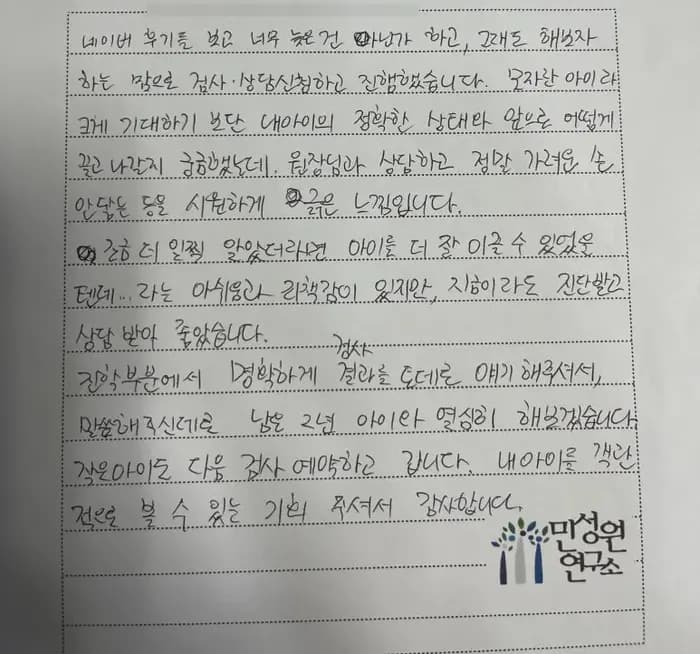 네이버 후기를 보고 너무 늦은건 아닌가 하고, 그래도 해보자
하는 맘으로 검사·상담신청하고 진행했습니다. 모자란 아이라
크게 기대하기 보단 내아이의 정확한 상태와 앞으로 어떻게
끌고 나갈지 궁금했는데. 원장님과 상담하고 정말 가려운 손
안닿는 등을 시원하게 긁은 느낌입니다.
조금 더 일찍 알았더라면 아이를 더 잘 이끌 수 있었을
텐데... 라는 아쉬움과 죄책감이 있지만, 지금이라도 진단받고
상담 받아 좋았습니다.
검사
진학부분에서 명확하게 결과를 토데로 얘기 해주셔서,
말씀해주신데로 남은 2년 아이와 열심히 해보겠습니다.
작은아이도 다음 검사 예약하고 갑니다. 내아이를 객관
적으로 볼 수 있는 기회 주셔서 감사합니다.
민성원
연구소